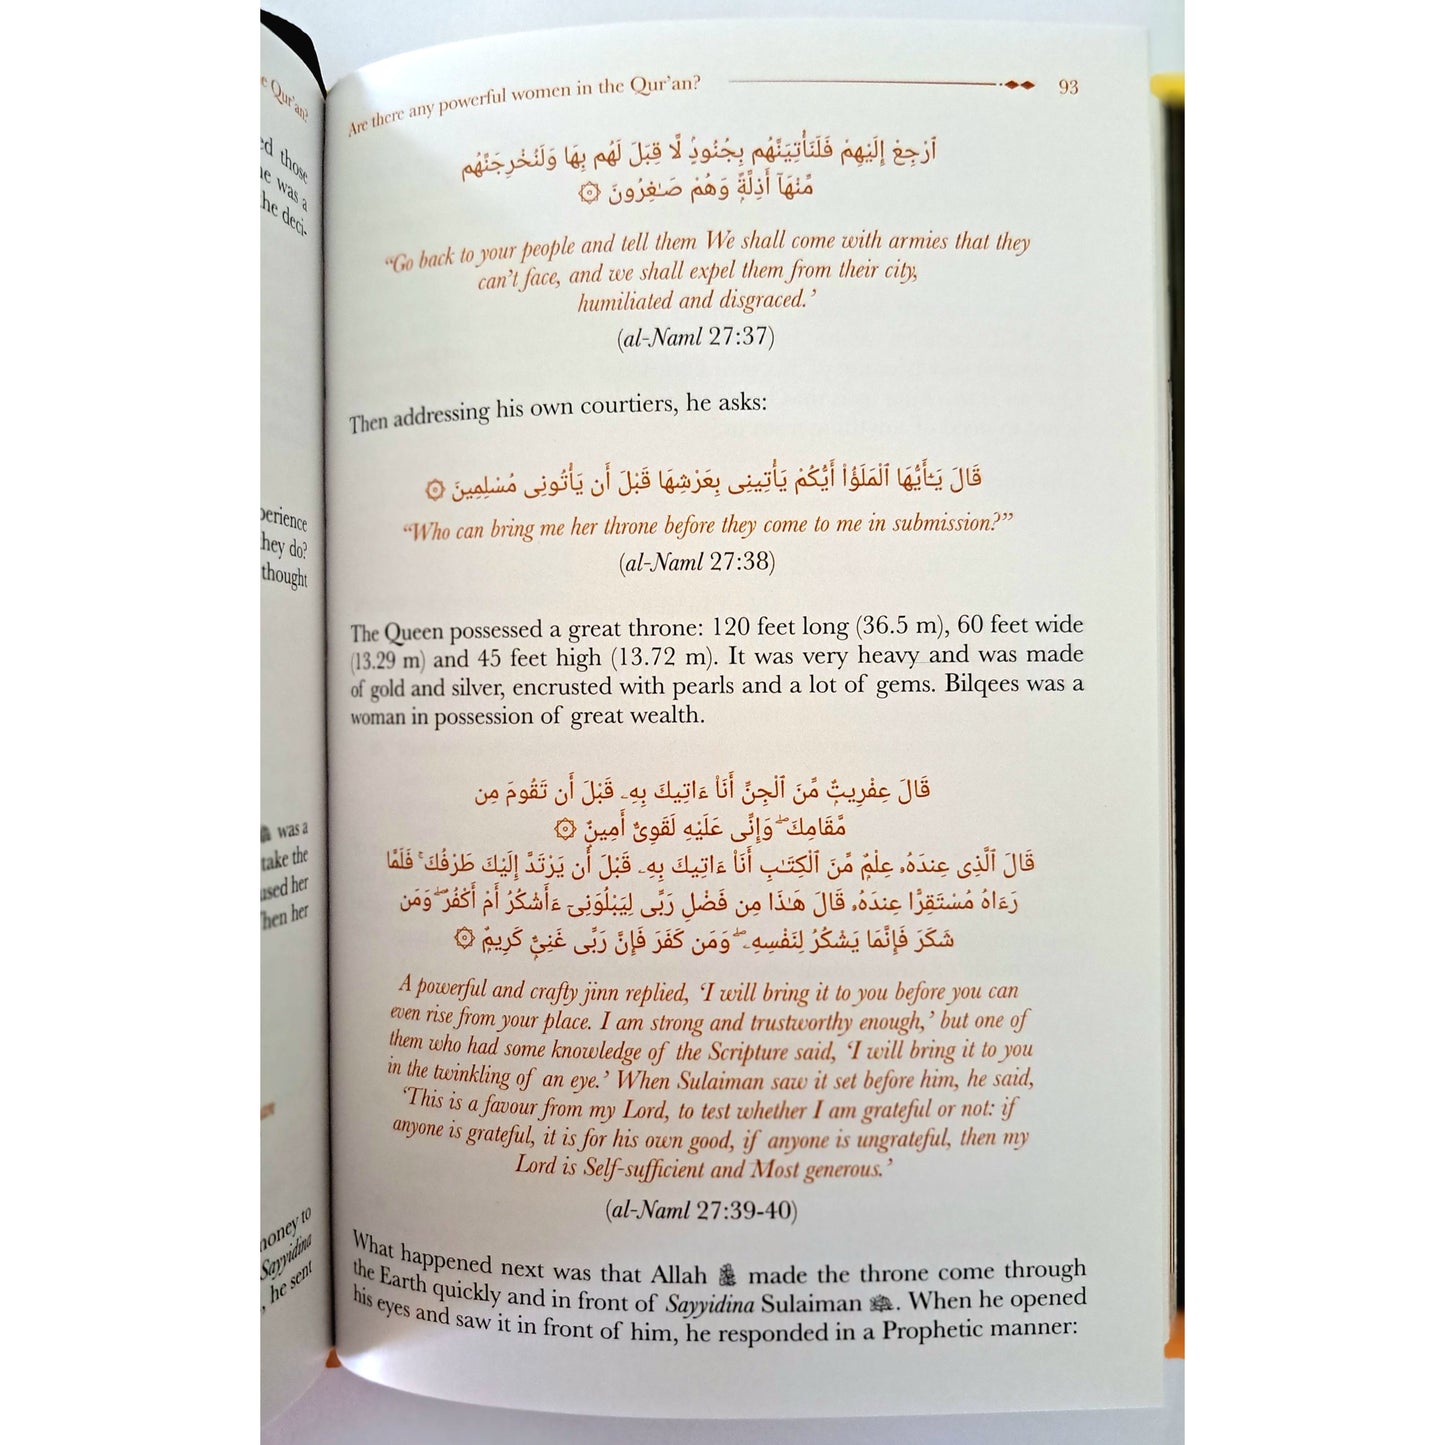 e Qur'an?
ed those
ne was a
he deci-
perience
hey do?
thought
was a
take the
used her
hen her
money to
Sayyidina
, he sent
Are there any powerful women in the Qur'an? 93
ٱرْجِعْ إِلَيْهِمْ فَلَنَأْتِيَنَّهُم بِجُنُودٍ لَّا قِبَلَ لَهُم بِهَا وَلَنُخْرِجَنَّهُم
مِّنْهَآ أَذِلَّةً وَهُمْ صَـٰغِرُونَ ۞
“Go back to your people and tell them We shall come with armies that they
can't face, and we shall expel them from their city,
humiliated and disgraced.’
(al-Naml 27:37)
Then addressing his own courtiers, he asks:
قَالَ يَـٰٓأَيُّهَا ٱلْمَلَؤُا۟ أَيُّكُمْ يَأْتِينِى بِعَرْشِهَا قَبْلَ أَن يَأْتُونِى مُسْلِمِينَ ۞
“Who can bring me her throne before they come to me in submission?”
(al-Naml 27:38)
The Queen possessed a great throne: 120 feet long (36.5 m), 60 feet wide
(13.29 m) and 45 feet high (13.72 m). It was very heavy and was made
of gold and silver, encrusted with pearls and a lot of gems. Bilqees was a
woman in possession of great wealth.
قَالَ عِفْرِيتٌ مِّنَ ٱلْجِنِّ أَنَا۠ ءَاتِيكَ بِهِۦ قَبْلَ أَن تَقُومَ مِن
مَّقَامِكَ ۖ وَإِنِّى عَلَيْهِ لَقَوِىٌّ أَمِينٌ ۞
قَالَ ٱلَّذِى عِندَهُۥ عِلْمٌ مِّنَ ٱلْكِتَـٰبِ أَنَا۠ ءَاتِيكَ بِهِۦ قَبْلَ أَن يَرْتَدَّ إِلَيْكَ طَرْفُكَ ۚ فَلَمَّا
رَءَاهُ مُسْتَقِرًّا عِندَهُۥ قَالَ هَـٰذَا مِن فَضْلِ رَبِّى لِيَبْلُوَنِىٓ ءَأَشْكُرُ أَمْ أَكْفُرُ ۖ وَمَن
شَكَرَ فَإِنَّمَا يَشْكُرُ لِنَفْسِهِۦ ۖ وَمَن كَفَرَ فَإِنَّ رَبِّى غَنِىٌّ كَرِيمٌ ۞
A powerful and crafty jinn replied, ‘I will bring it to you before you can
even rise from your place. I am strong and trustworthy enough,’ but one of
them who had some knowledge of the Scripture said, ‘I will bring it to you
in the twinkling of an eye.’ When Sulaiman saw it set before him, he said,
‘This is a favour from my Lord, to test whether I am grateful or not: if
anyone is grateful, it is for his own good, if anyone is ungrateful, then my
Lord is Self-sufficient and Most generous.’
(al-Naml 27:39-40)
What happened next was that Allah made the throne come through
the Earth quickly and in front of Sayyidina Sulaiman. When he opened
his eyes and saw it in front of him, he responded in a Prophetic manner: